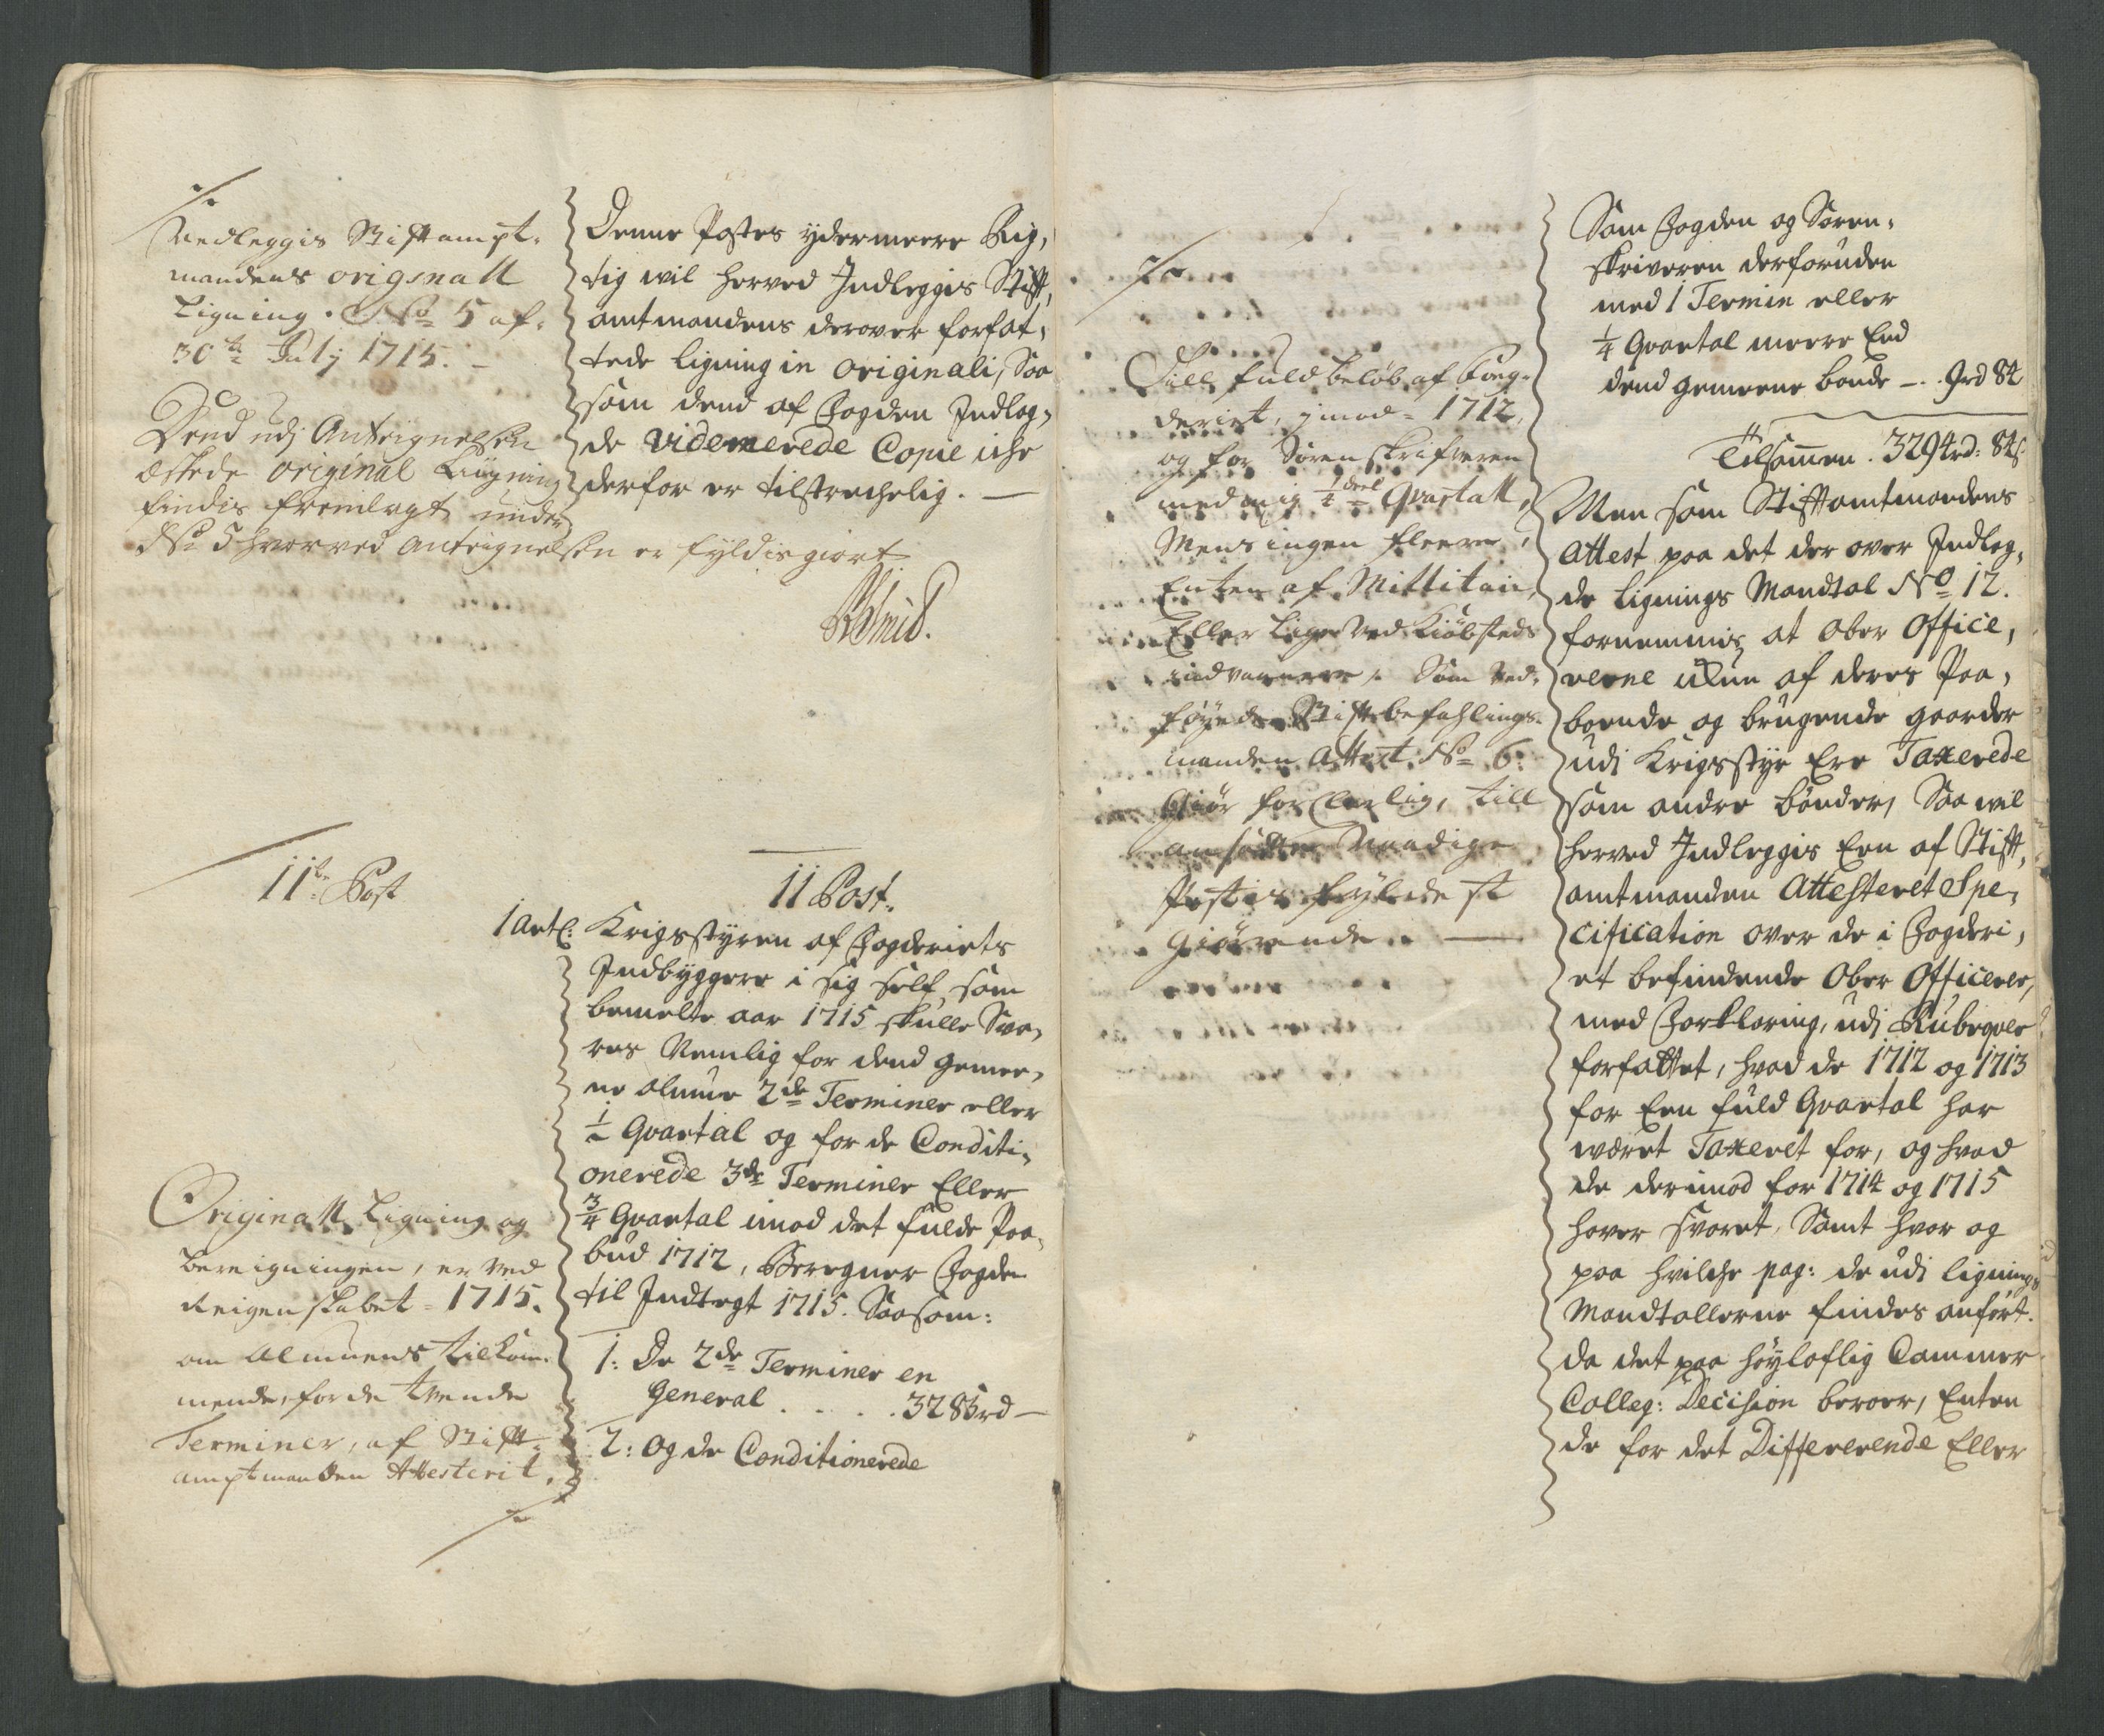 Vedleggis Stiftampt-
mandens original
Ligning. No 5 af
30te July 1715. –
Dend udj Anteignelsen
æskede original Ligning
findis fremlagt under
No 5 hvorved Anteignelsen er fyldisgiort
Denne Postes ydermeere Rig,
tig wil herved Indleggis Stift,
amtmandens derover forfat,
tede ligning in originali, Saa
som dend af Fogden Indlag,
de videmerede Copie iche
derfor er tilstrechelig. —
11te Post
11 Post.
1 Artl: Krigsstyren af Fogderiets
Indbyggere i sig self, som
bemelte aar 1715 skulle Sva,
res Nemlig for dend gemee,
ne almue 2de Terminer eller
½ Qvartal og for de Conditi,
onerede 3de Terminer Eller
¾ Qvartal imod det fulde Paa,
bud 1712, Beregner Fogden
til Indtegt 1715. Saasom:
1: De 2de Terminer en
General . . . . 3285rd —
2: Og de Conditionerede
Originall Ligning og
bereigningen, er ved
Reigenskabet 1715.
om Almuens tilkom-
mende, for de tvende
Terminer, af Stift-
amptmanden Attesterit.
Till fuld beløb af Fog-
deriet, imod 1712,
og for Sørenskrifveren
med mig ¼ deel Qvartall,
Mens ingen fleere,
Enten af Millitair,
Eller Lige ved Kiöbsteds
indvaanere, Som ved-
föyede Stiftbefahlings-
manden Attest No 6.
Giör forClarlig, till
Naadige
Postis fyldest
Giörende. —
Som Fogden og Soren,
skriveren derforuden
med 1 Termin eller
¼ Qvartal meere End
dend gemeene bonde —. 9rd 84
Tilsammen. 3294rd: 84s.
Men som Stiftamtmandens
Attest paa det der over Indlag,
de Lignings Mandtal No 12.
fornemmis at Ober Office,
rerne ikun af deres Paa,
boende og brugende gaarder
udi Krigsstyr Ere Taxerede
som andre bönder, Saa wil
herved Indleggis Een af Stift,
amtmanden Attesteret Spe,
cification over de i Fogderi,
et befindende Ober Officerer,
med Forklaring, udj Rubrqver
forfattet, hvad de 1712 og 1713
for Een fuld Qvartal har
wæret Taxeret for, og hvad
de derimod for 1714 og 1715
haver svaret, Samt hvor og
paa hvilche pag: de udi lignings
Mandtallerne findes anfört.
da det paa höylaflig Cammer
Colleg: Decision beroer, Enten
de for det Differerende Eller